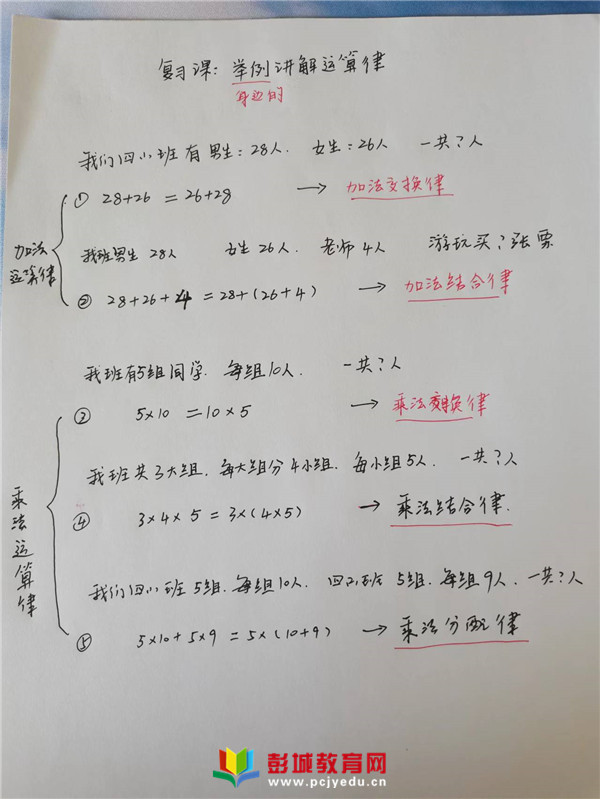 复习课：举例讲解运算律
身边的
我们四(1)班有男生：28人． 女生：26人 一共？人
① 28+26 = 26+28 → 加法交换律
加法运算律
我班男生 28人 女生 26人． 老师 4人 游玩买？张票
② 28+26+4 = 28+(26+4) → 加法结合律
我班有5组同学． 每组10人． 一共？人
② 5×10 = 10×5 → 乘法交换律
我班共3大组．每大组分4小组．每小组5人． 一共？人
④ 3×4×5 = 3×(4×5) → 乘法结合律．
乘法运算律
我们四(1)班 5组．每组10人． 四(2)班 5组．每组9人．一共？人
⑤ 5×10+5×9 = 5×(10+9) → 乘法分配律
彭城教育网
www.pcjyedu.cn